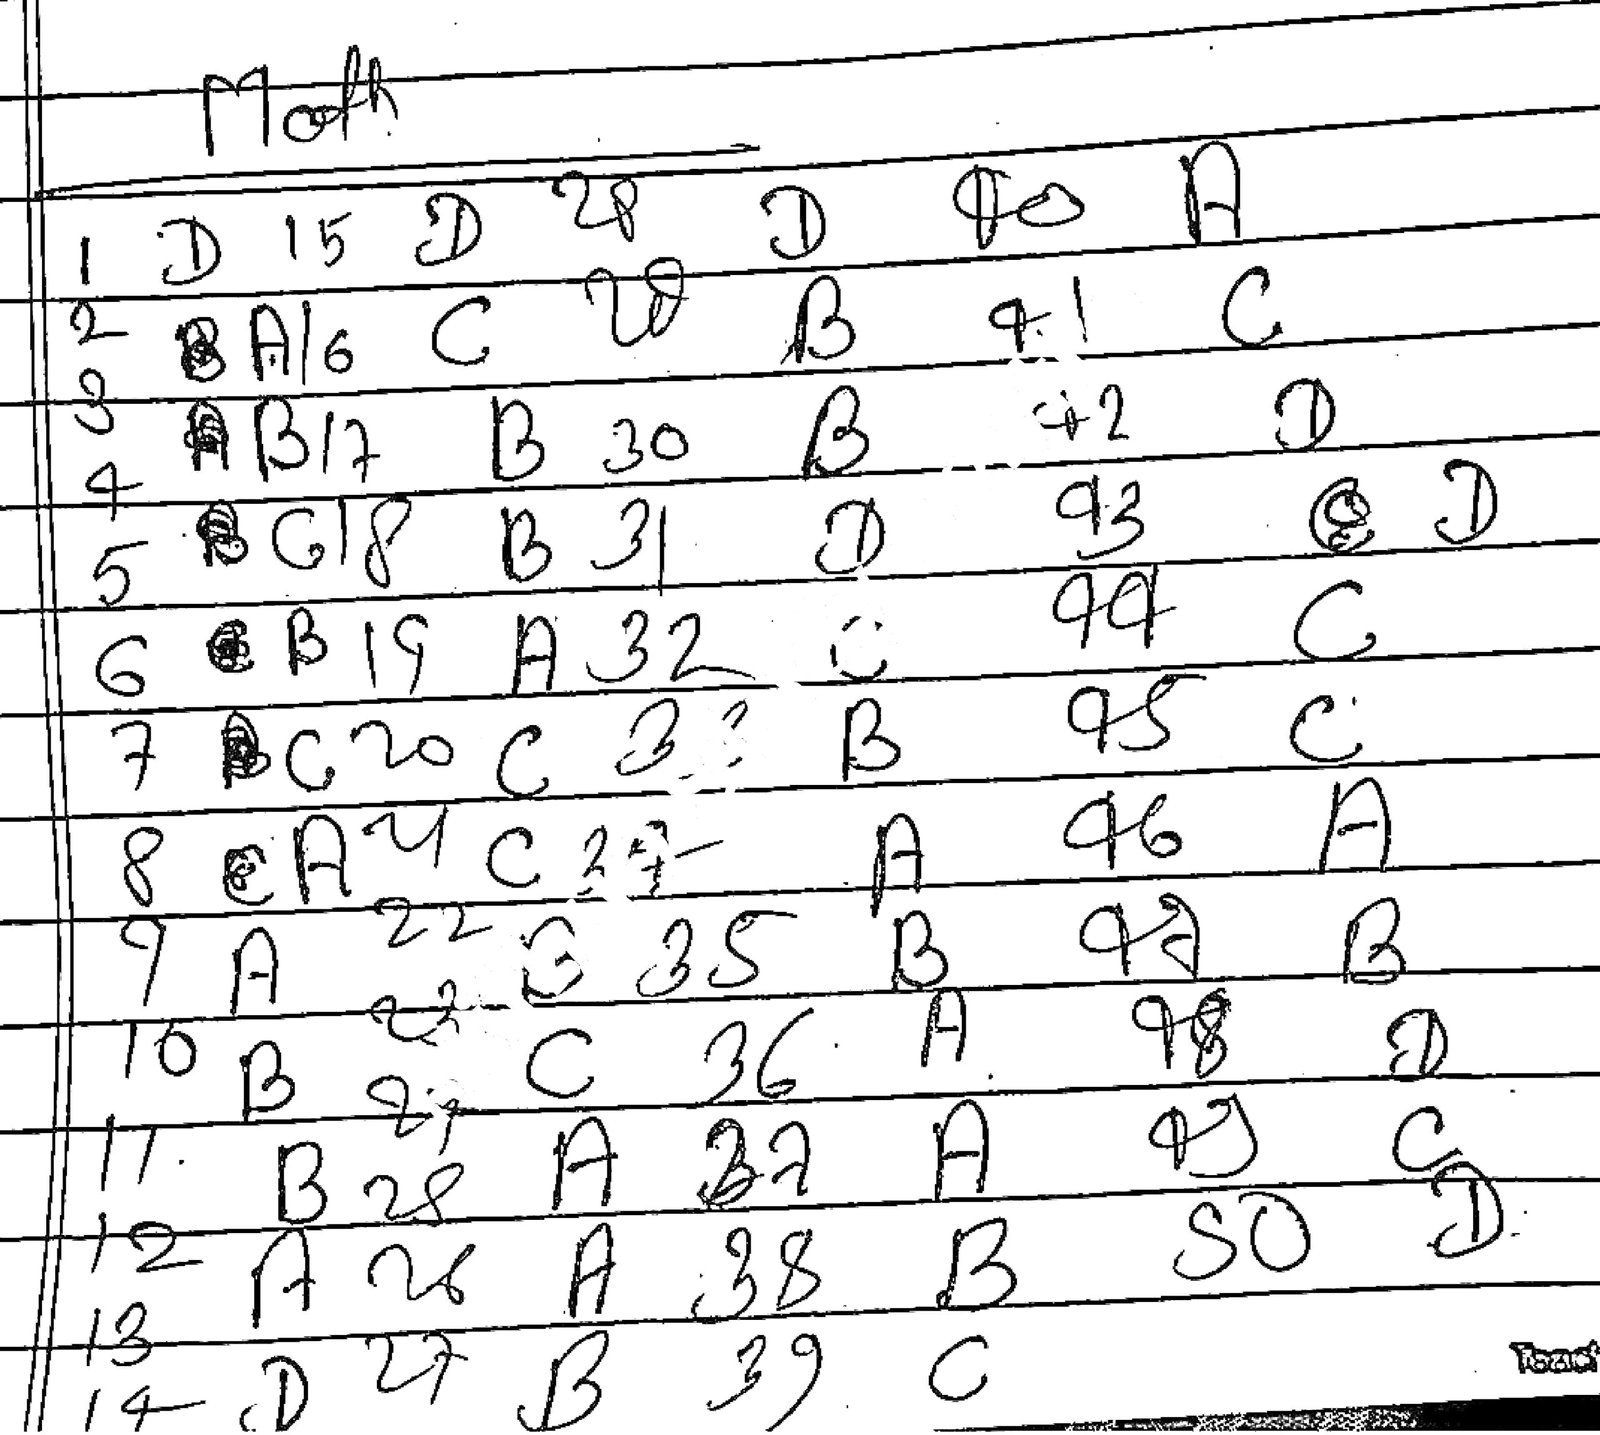 Math
1 D 15 D 28 D 40 A
2 A 16 C 29 B 41 C
3 B 17 B 30 B 42 D
4
5 C 18 B 31 D 43 D
6 B 19 A 32 C 44 C
7 C 20 C 33 B 45 C
8 A 21 C 34 A 46 A
9 A 22 B 35 B 47 B
10 B 23 C 36 A 48 D
24
11 B 25 A 37 A 49 C
12 A 26 A 38 B 50 D
13
14 D 27 B 39 C